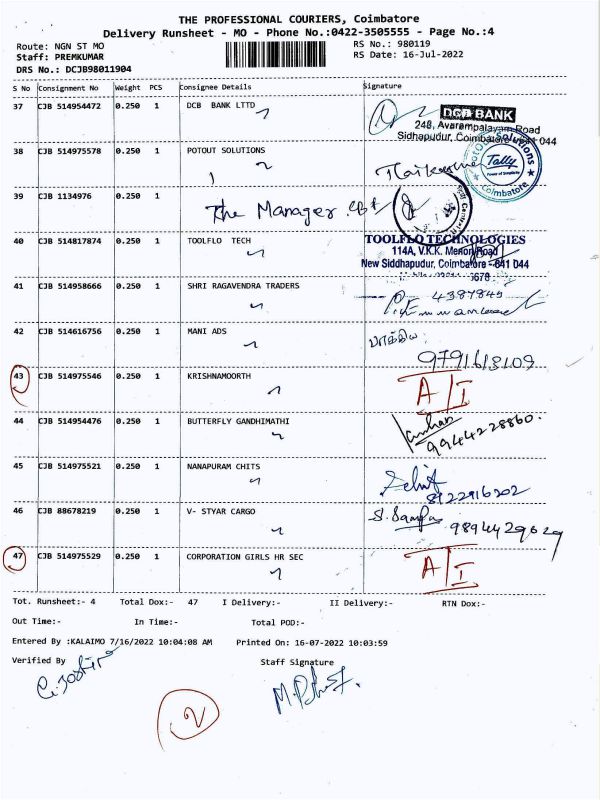 THE PROFESSIONAL COURIERS, Coimbatore
Delivery Runsheet - MO - Phone No.:0422-3505555 - Page No.:4
Route: NGN ST MO RS No.: 980119
Staff: PREMKUMAR RS Date: 16-Jul-2022
DRS No.: DCJB98011904
S No Consignment No Weight PCS Consignee Details Signature
37 CJB 514954472 0.250 1 DCB BANK LTTD
DCB BANK
248, Avarampalayam Road
Sidhapudur, Coimbatore 641 044
38 CJB 514975578 0.250 1 POTOUT SOLUTIONS
Tally
Power of Simplicity
Coimbatore
39 CJB 1134976 0.250 1 The Manager
40 CJB 514817874 0.250 1 TOOLFLO TECH
TOOLFLO TECHNOLOGIES
114A, V.K.K. Menon Road
New Siddhapudur, Coimbatore - 641 044
41 CJB 514958666 0.250 1 SHRI RAGAVENDRA TRADERS
42 CJB 514616756 0.250 1 MANI ADS
43 CJB 514975546 0.250 1 KRISHNAMOORTH A/I
44 CJB 514954476 0.250 1 BUTTERFLY GANDHIMATHI 9944228860
45 CJB 514975521 0.250 1 NANAPURAM CHITS 8122916202
46 CJB 88678219 0.250 1 V- STYAR CARGO 9894429629
47 CJB 514975529 0.250 1 CORPORATION GIRLS HR SEC A/I
Tot. Runsheet:- 4 Total Dox:- 47 I Delivery:- II Delivery:- RTN Dox:-
Out Time:- In Time:- Total POD:-
Entered By :KALAIMO 7/16/2022 10:04:08 AM Printed On: 16-07-2022 10:03:59
Verified By Staff Signature
2